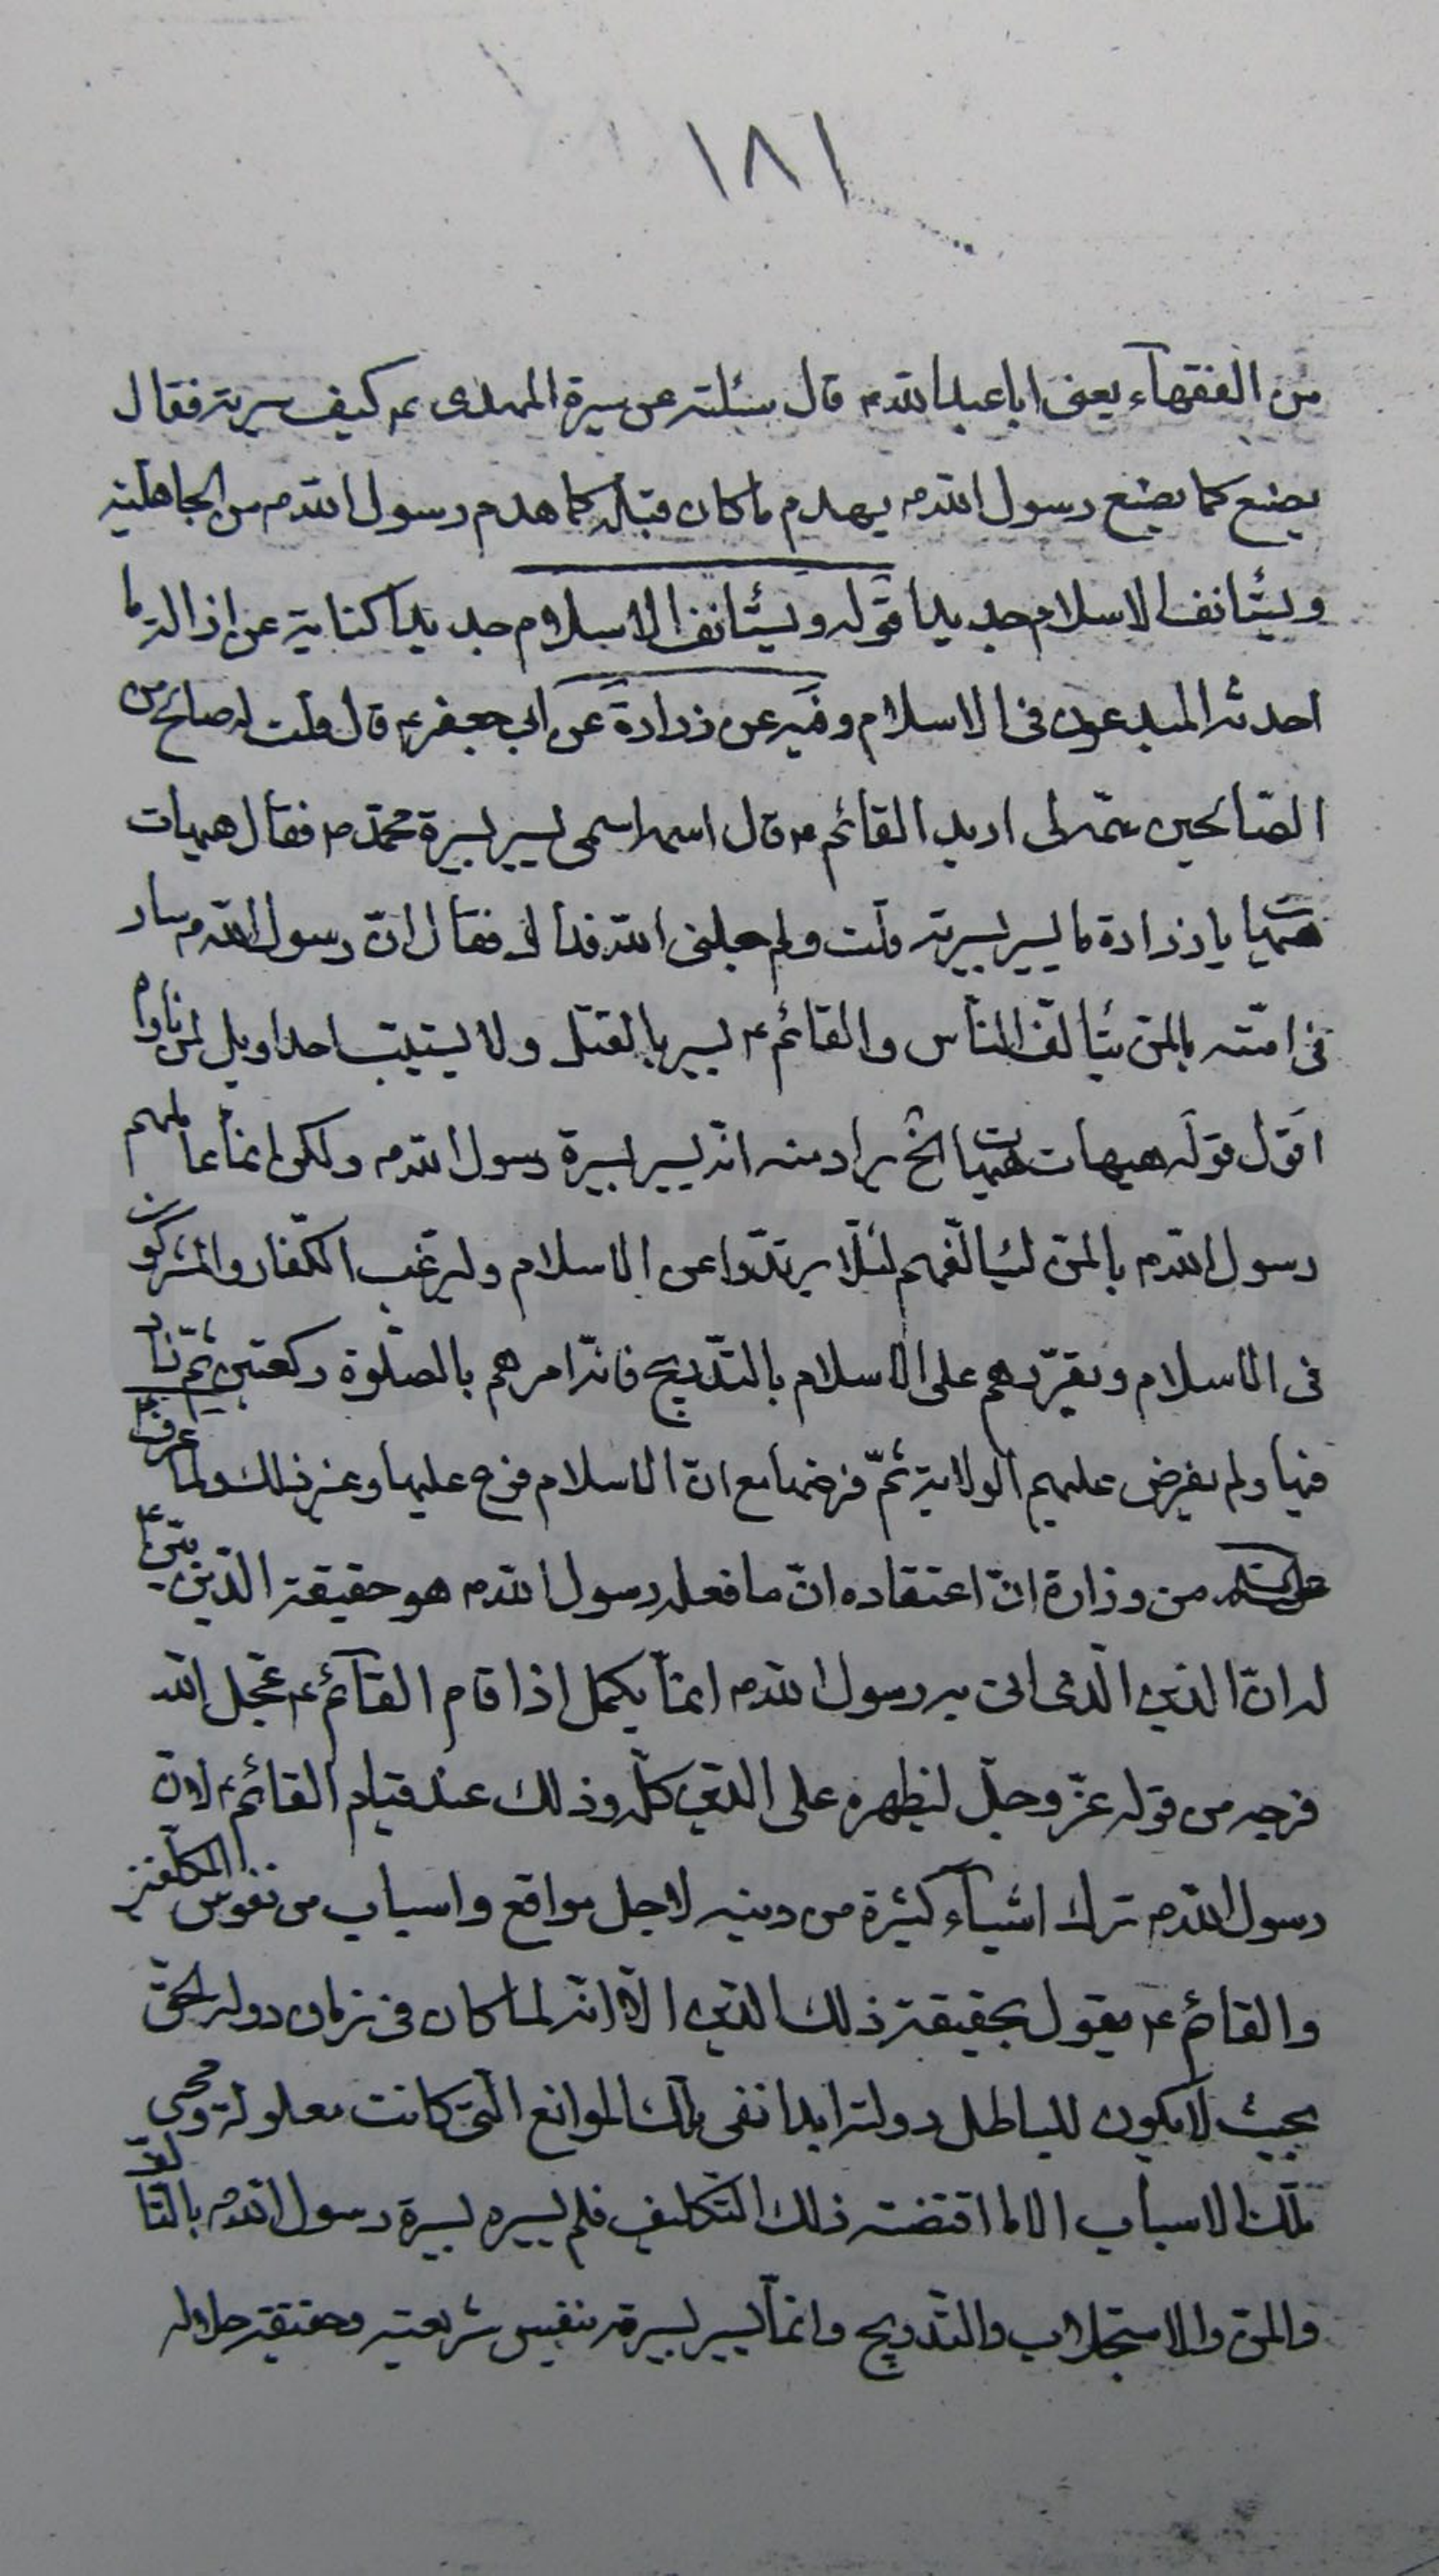 ١٨١
من الفقهآء يعنى ابا عبدالله؏ قال سئلته عن سيرة المهدى ؏ كيف سيرته فقال
يصنع كما يصنع رسول الله ص يهدم ما كان قبله كما هدم رسول الله ص من الجاهلية
ويستأنف الاسلام جديدا قوله ويستأنف الاسلام جديدا كناية عن ازالة ما
احدثه المبدعون فى الاسلام وفيه عن زرارة عن ابى جعفر؏ قال قلت له صالح من
الصّالحين سمّه لى اريد القائم؏ قال اسمه اسمى يسير بسيرة محمّد ص فقال هيهات
هيهات يا زرارة ما يسير بسيرته قلت ولم جعلنى الله فداك فقال انّ رسول الله ص سار
فى امّته بالمنّ يتألّف النّاس والقائم؏ يسير بالقتل ولا يستتيب احدا ويل لمن ناواه
اقول قوله هيهات هيهات الخ يراد منه انّه يسير بسيرة رسول الله ص ولكن انّما عاملهم
رسول الله ص بالمنّ ليتألّفهم لئلّا يرتدّوا عن الاسلام وليرغب الكفّار والمشركون
فى الاسلام ويقرّبهم على الاسلام بالتدّريج فانّه امرهم بالصلّوة ركعتين ثمّ زاد
فيها ولم يفرض عليهم الولاية ثمّ فرضها مع انّ الاسلام فرع عليها وغير ذلك ولما عرف
عليه السلم من وزارة انّ اعتقاده انّ ما فعله رسول الله ص هو حقيقة الدّين بيّن ؏
له انّ الدّين الّذى اتى به رسول الله ص انمّا يكمل اذا قام القآئم؏ عجّل الله
فرجه من قوله عزّ وجلّ ليظهره على الدّين كلّه وذلك عند قيام القائم؏ لانّ
رسول الله ص ترك اشيآء كثيرة من دينه لاجل مواقع واسباب من نفوس المكلّفين
والقائم ؏ يقول بحقيقة ذلك الدّين الّا انّه لما كان فى زمان دولة الحقّ
بحيث لا يكون للباطل دولة ابدا نفى تلك الموانع الّتى كانت معلولة ومحى
تلك الاسباب الا ما اقتضته ذلك التّكليف فلم يسير بسيرة رسول الله ص بالتّألّف
والمنّ والاستجلاب والتّدريج وانمّا يسير بسيرة نفس شريعته وحقيقة حلاله